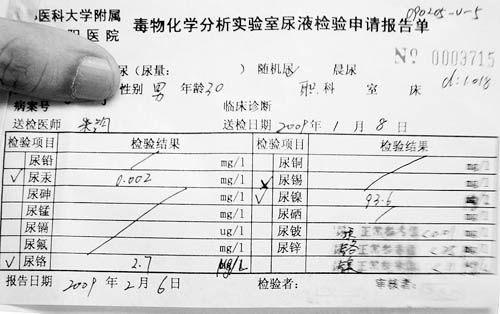 医科大学附属
医院 毒物化学分析实验室尿液检验申请报告单
090205-U-5
No 0003715
尿(尿量: ) 随机尿 晨尿
d:1.018
性别 男 年龄30 职.科 室 床
病案号 临床诊断
送检医师 送检日期 2009年 1 月 8 日
检验项目 检验结果 检验项目 检验结果
尿铅 mg/l 尿铜 mg/l
√ 尿汞 0.002 mg/l 尿锡 mg/l
尿砷 mg/l √ 尿镍 93.6
尿锰 mg/l 尿硒 mg/l
尿镉 ug/l 尿铍 正常参考值<
尿氟 mg/l 尿锌 正常参考值<
√ 尿铬 2.7 μg/L 正常参考值<
报告日期 2009 年 2 月 6 日 检验者: 审核者: